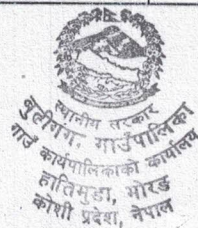 स्थानीय सरकार
बुढीगंगा गाउँपालिका
गाउँ कार्यपालिकाको कार्यालय
हातिमुडा, मोरङ
कोशी प्रदेश, नेपाल